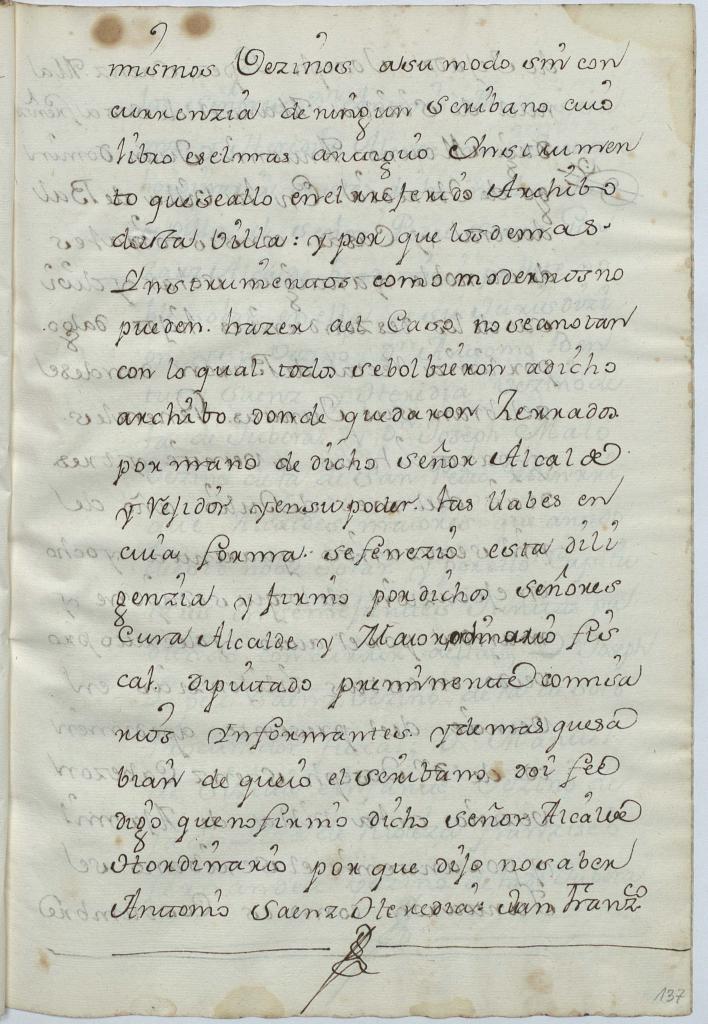 mismos Vezinos asu modo sin con
currenzia deningun Scribano cuio
libro eselmas antiguo Ynstrumen
to queseallo enel rreferido Archibo
desta Villa: y por que losdemas
Ynstrumentos como modernos no
pueden hazer ael Caso no seanotan
con lo qual todos sebolbieron adicho
archibo donde quedaron Zerrados
por mano de dicho Señor Alcalde
y Rejidor yensu poder las llabes en
cuia forma sefenezio esta dili
genzia y firmo pordichos Señores
Cura Alcalde y Maior fis
cal diputado preminente comisa
rios Ynformantes ydemas quesa
bian de queio el Scribano doi fee
digo quenofirmo dicho Señor Alcalde
Hordinario por que dijo nosaber
Anttonio Saenz Heredia: Juan Franzco
137